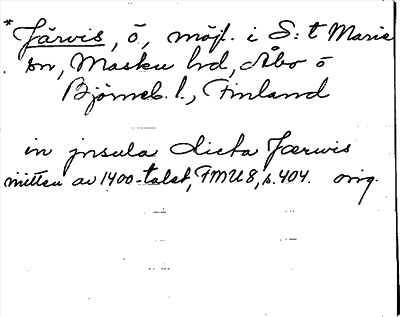 * Järvis, ö, möjl. i S:t Marie
sn, Masku hd, Åbo o
Björneb. l., Finland
in jnsula dicta Jærwis
mitten av 1400-talet, FMU 8, s. 404. orig.